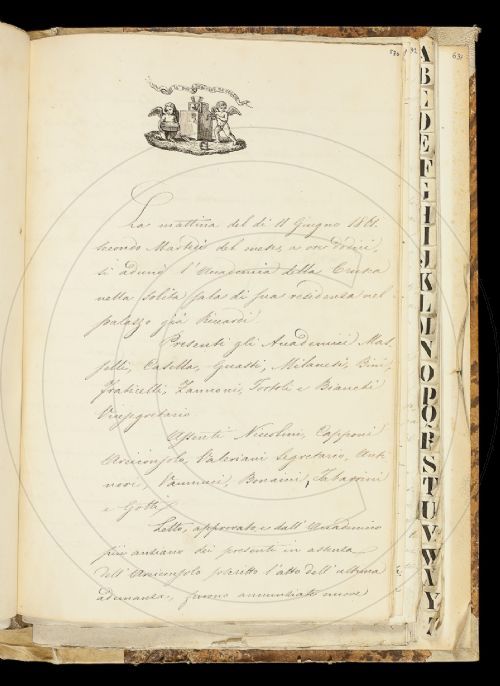 530
631
La mattina del dì 11 Giugno 1861.
secondo Martedì del mese, a ore dodici,
si adunò l'Accademia della Crusca
nella solita sala di sua residenza nel
palazzo già Riccardi
Presenti gli Accademici
Casella, Guasti, Milanesi, Bini,
Fraticelli, Zannoni, Tortoli e Bianchi
Vicesegretario
Assenti Niccolini, Capponi
Arciconsolo, Valeriani Segretario,
Vannucci, Bonaini, Tabarrini
e Gotti
Letto, approvato e dall'Accademico
più anziano dei presenti in assenza
dell'Arciconsolo soscritto l'atto dell'ultima
adunanza, furono annunziate nuove
A
B
C
D
E
F
G
H
I
J
K
L
M
N
O
P
Q
R
S
T
U
V
W
X
Y
Z